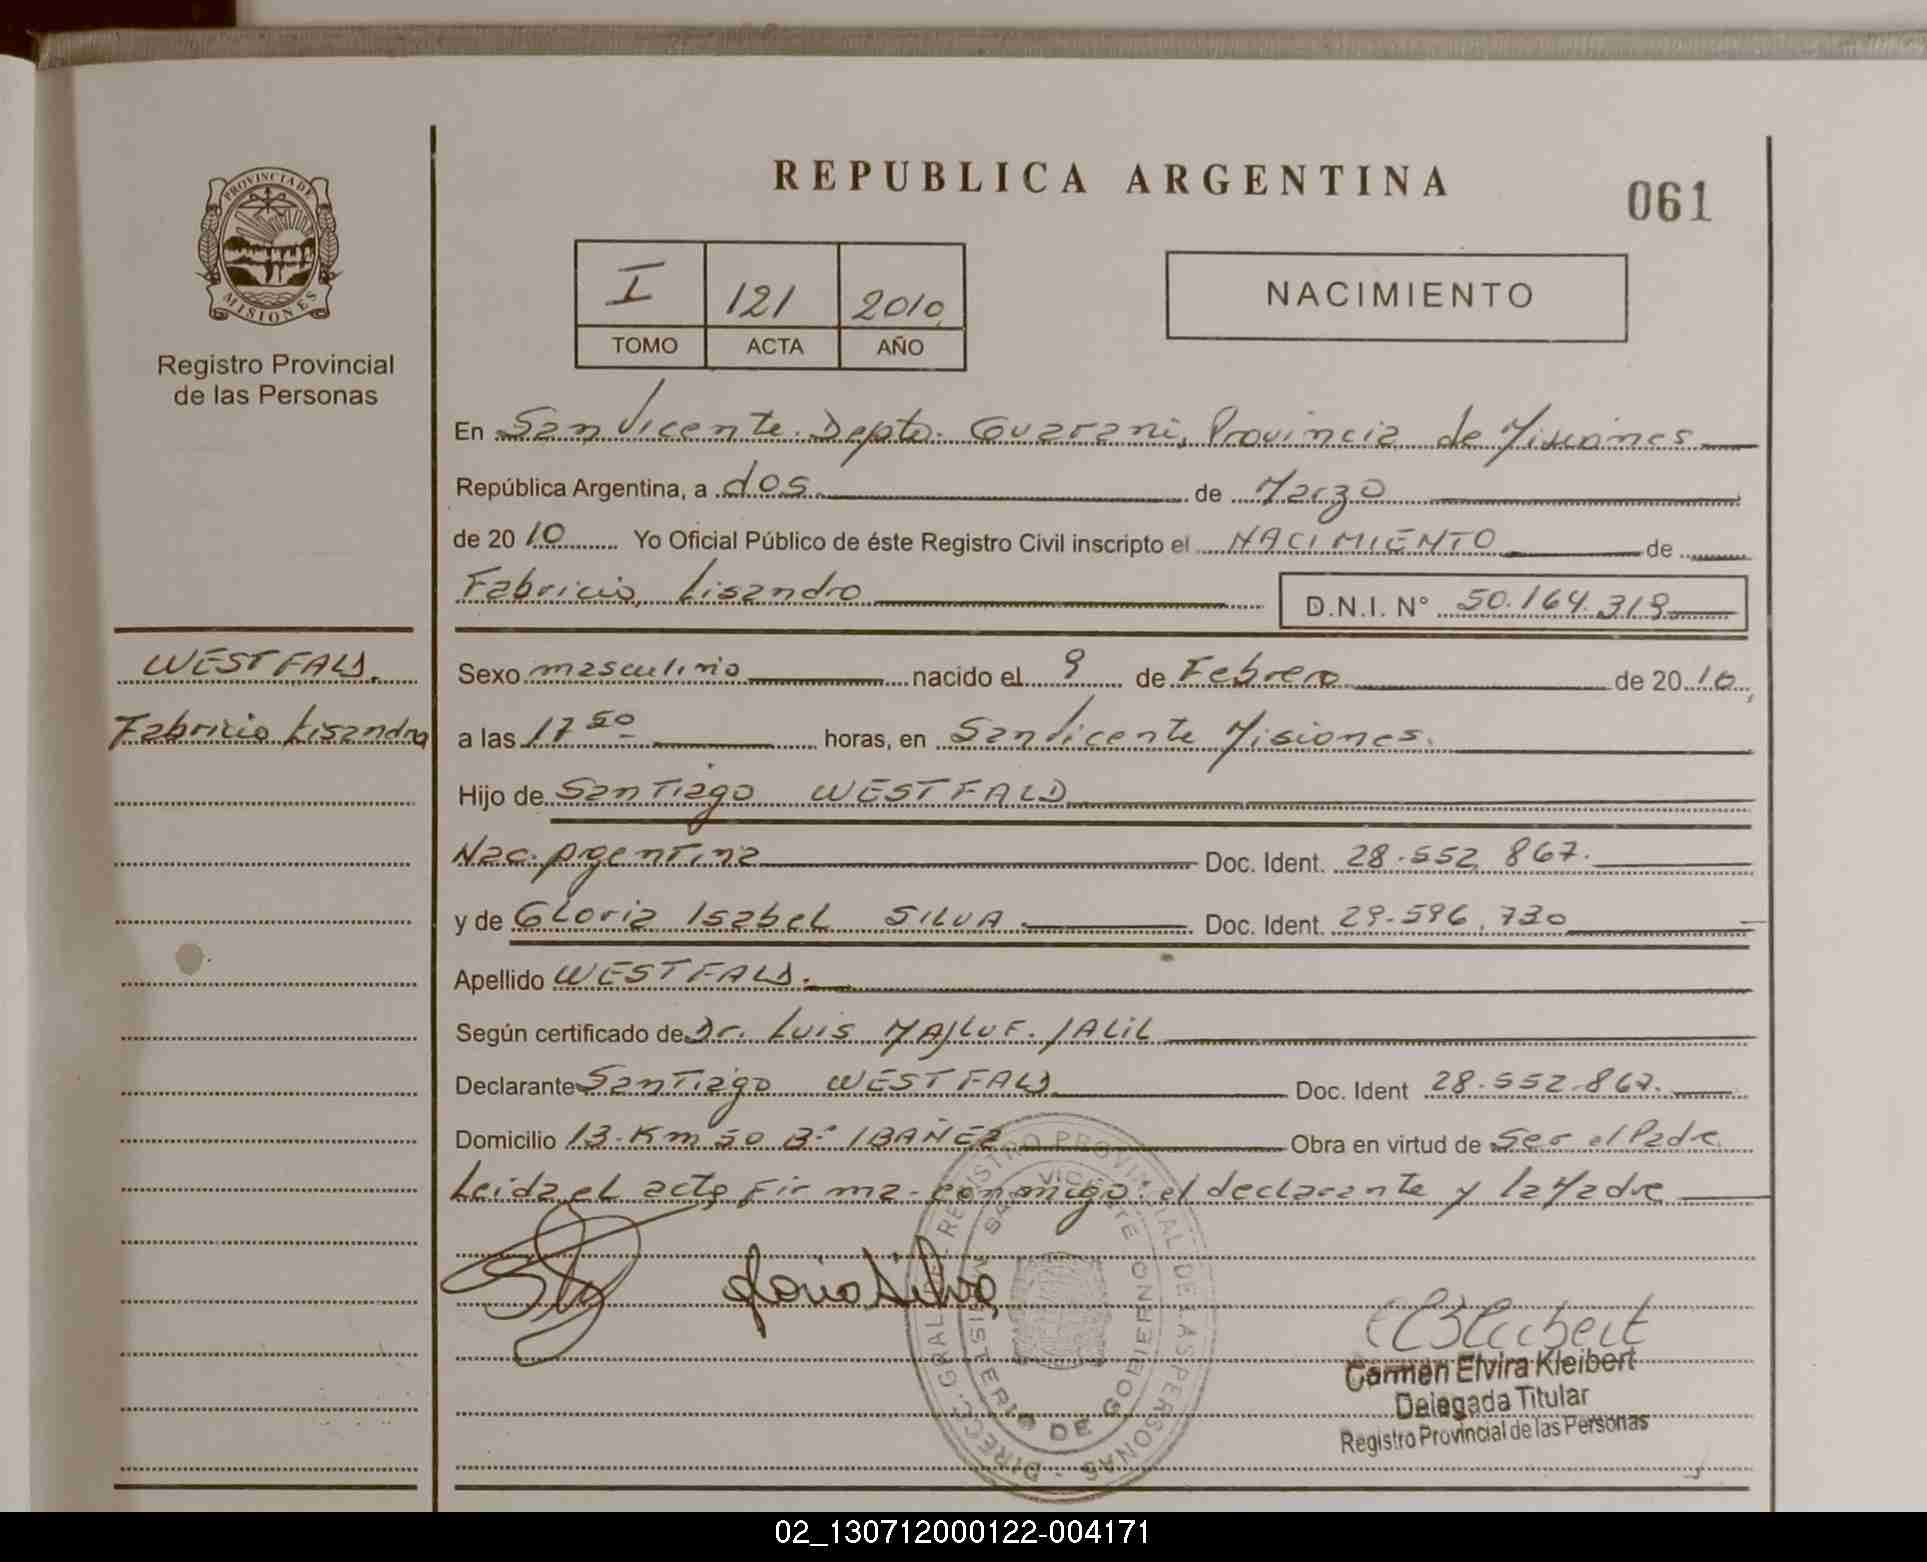 PROVINCIA DE
MISIONES
Registro Provincial
de las Personas
WESTFALD.
Fabricio Lisandro
REPUBLICA ARGENTINA
061
I 121 2010
TOMO ACTA AÑO
NACIMIENTO
En San Vicente. Depto. Guarani, Provincia de Misiones
República Argentina, a dos de Marzo
de 2010 Yo Oficial Público de éste Registro Civil inscripto el NACIMIENTO de
Fabricio, Lisandro D.N.I. N° 50.164.319
Sexo masculino nacido el 9 de Febrero de 2010,
a las 17 50 horas, en San Vicente Misiones.
Hijo de Santiago WESTFALD
Nac. Argentina Doc. Ident. 28.552.867.
y de Gloria Isabel SILVA Doc. Ident. 29.596.730
Apellido WESTFALD.
Según certificado de Dr. Luis MAJLUF. JALIL
Declarante Santiago WESTFALD Doc. Ident 28.552.867.
Domicilio 13. Km 50 B° IBAÑEZ Obra en virtud de ser el Padre
Leida el acta, Firma conmigo: el declarante y la Madre
Gloria Silva
DIRECC. GRAL. DE REGISTRO PROVINCIAL DE LAS PERSONAS
SAN VICENTE
MINISTERIO DE GOBIERNO
Carmen Elvira Kleibert
Delegada Titular
Registro Provincial de las Personas
02_130712000122-004171